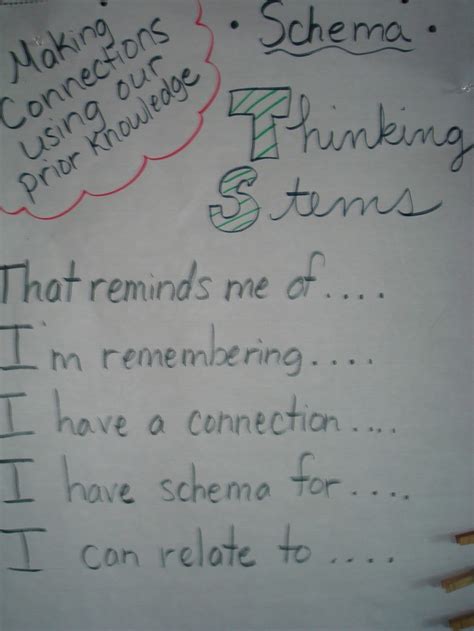 Making
Connections
using our
prior Knowledge
• Schema •
Thinking
Stems
That reminds me of....
I'm remembering....
I have a connection....
I have schema for....
I can relate to ....